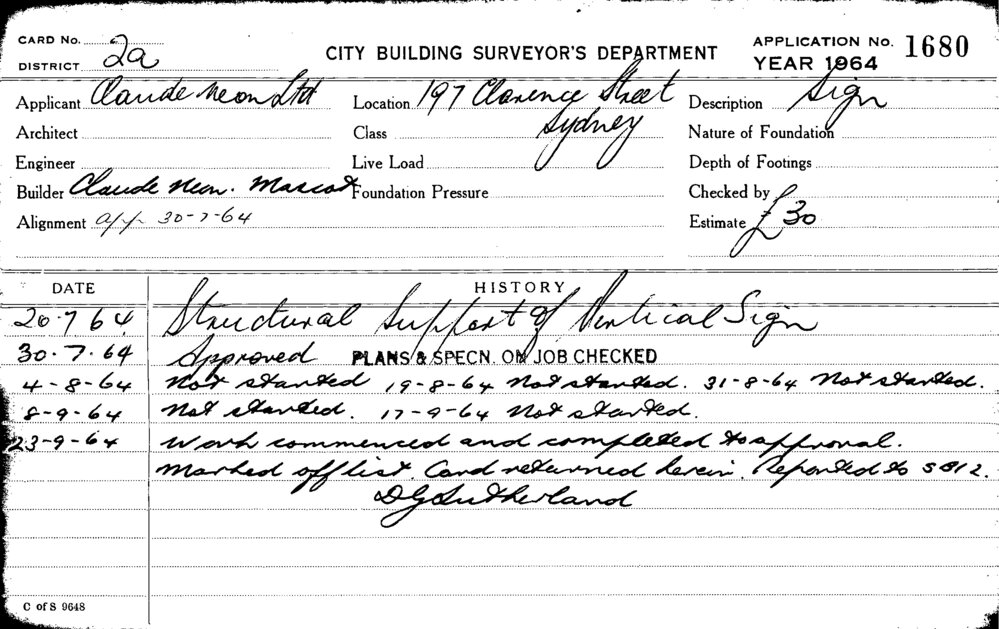 CARD No. 2a
DISTRICT
CITY BUILDING SURVEYOR'S DEPARTMENT
APPLICATION No. 1680
YEAR 1964
Applicant Claude Neon Ltd Location 197 Clarence Street Description Sign
Architect Class Sydney Nature of Foundation
Engineer Live Load Depth of Footings
Builder Claude Neon. Mascot Foundation Pressure Checked by
Alignment app 30-7-64 Estimate £30
DATE HISTORY
20.7 64 Structural Support of Vertical Sign
30.7.64 Approved PLANS & SPECN. ON JOB CHECKED
4-8-64 Not started 19-8-64 Not started. 31-8-64 Not started.
8-9-64 Not started. 17-9-64 Not started.
23-9-64 Work commenced and completed to approval.
Marked off list. Card returned herein. Reported to SBI 2.
DG Sutherland
C of S 9648